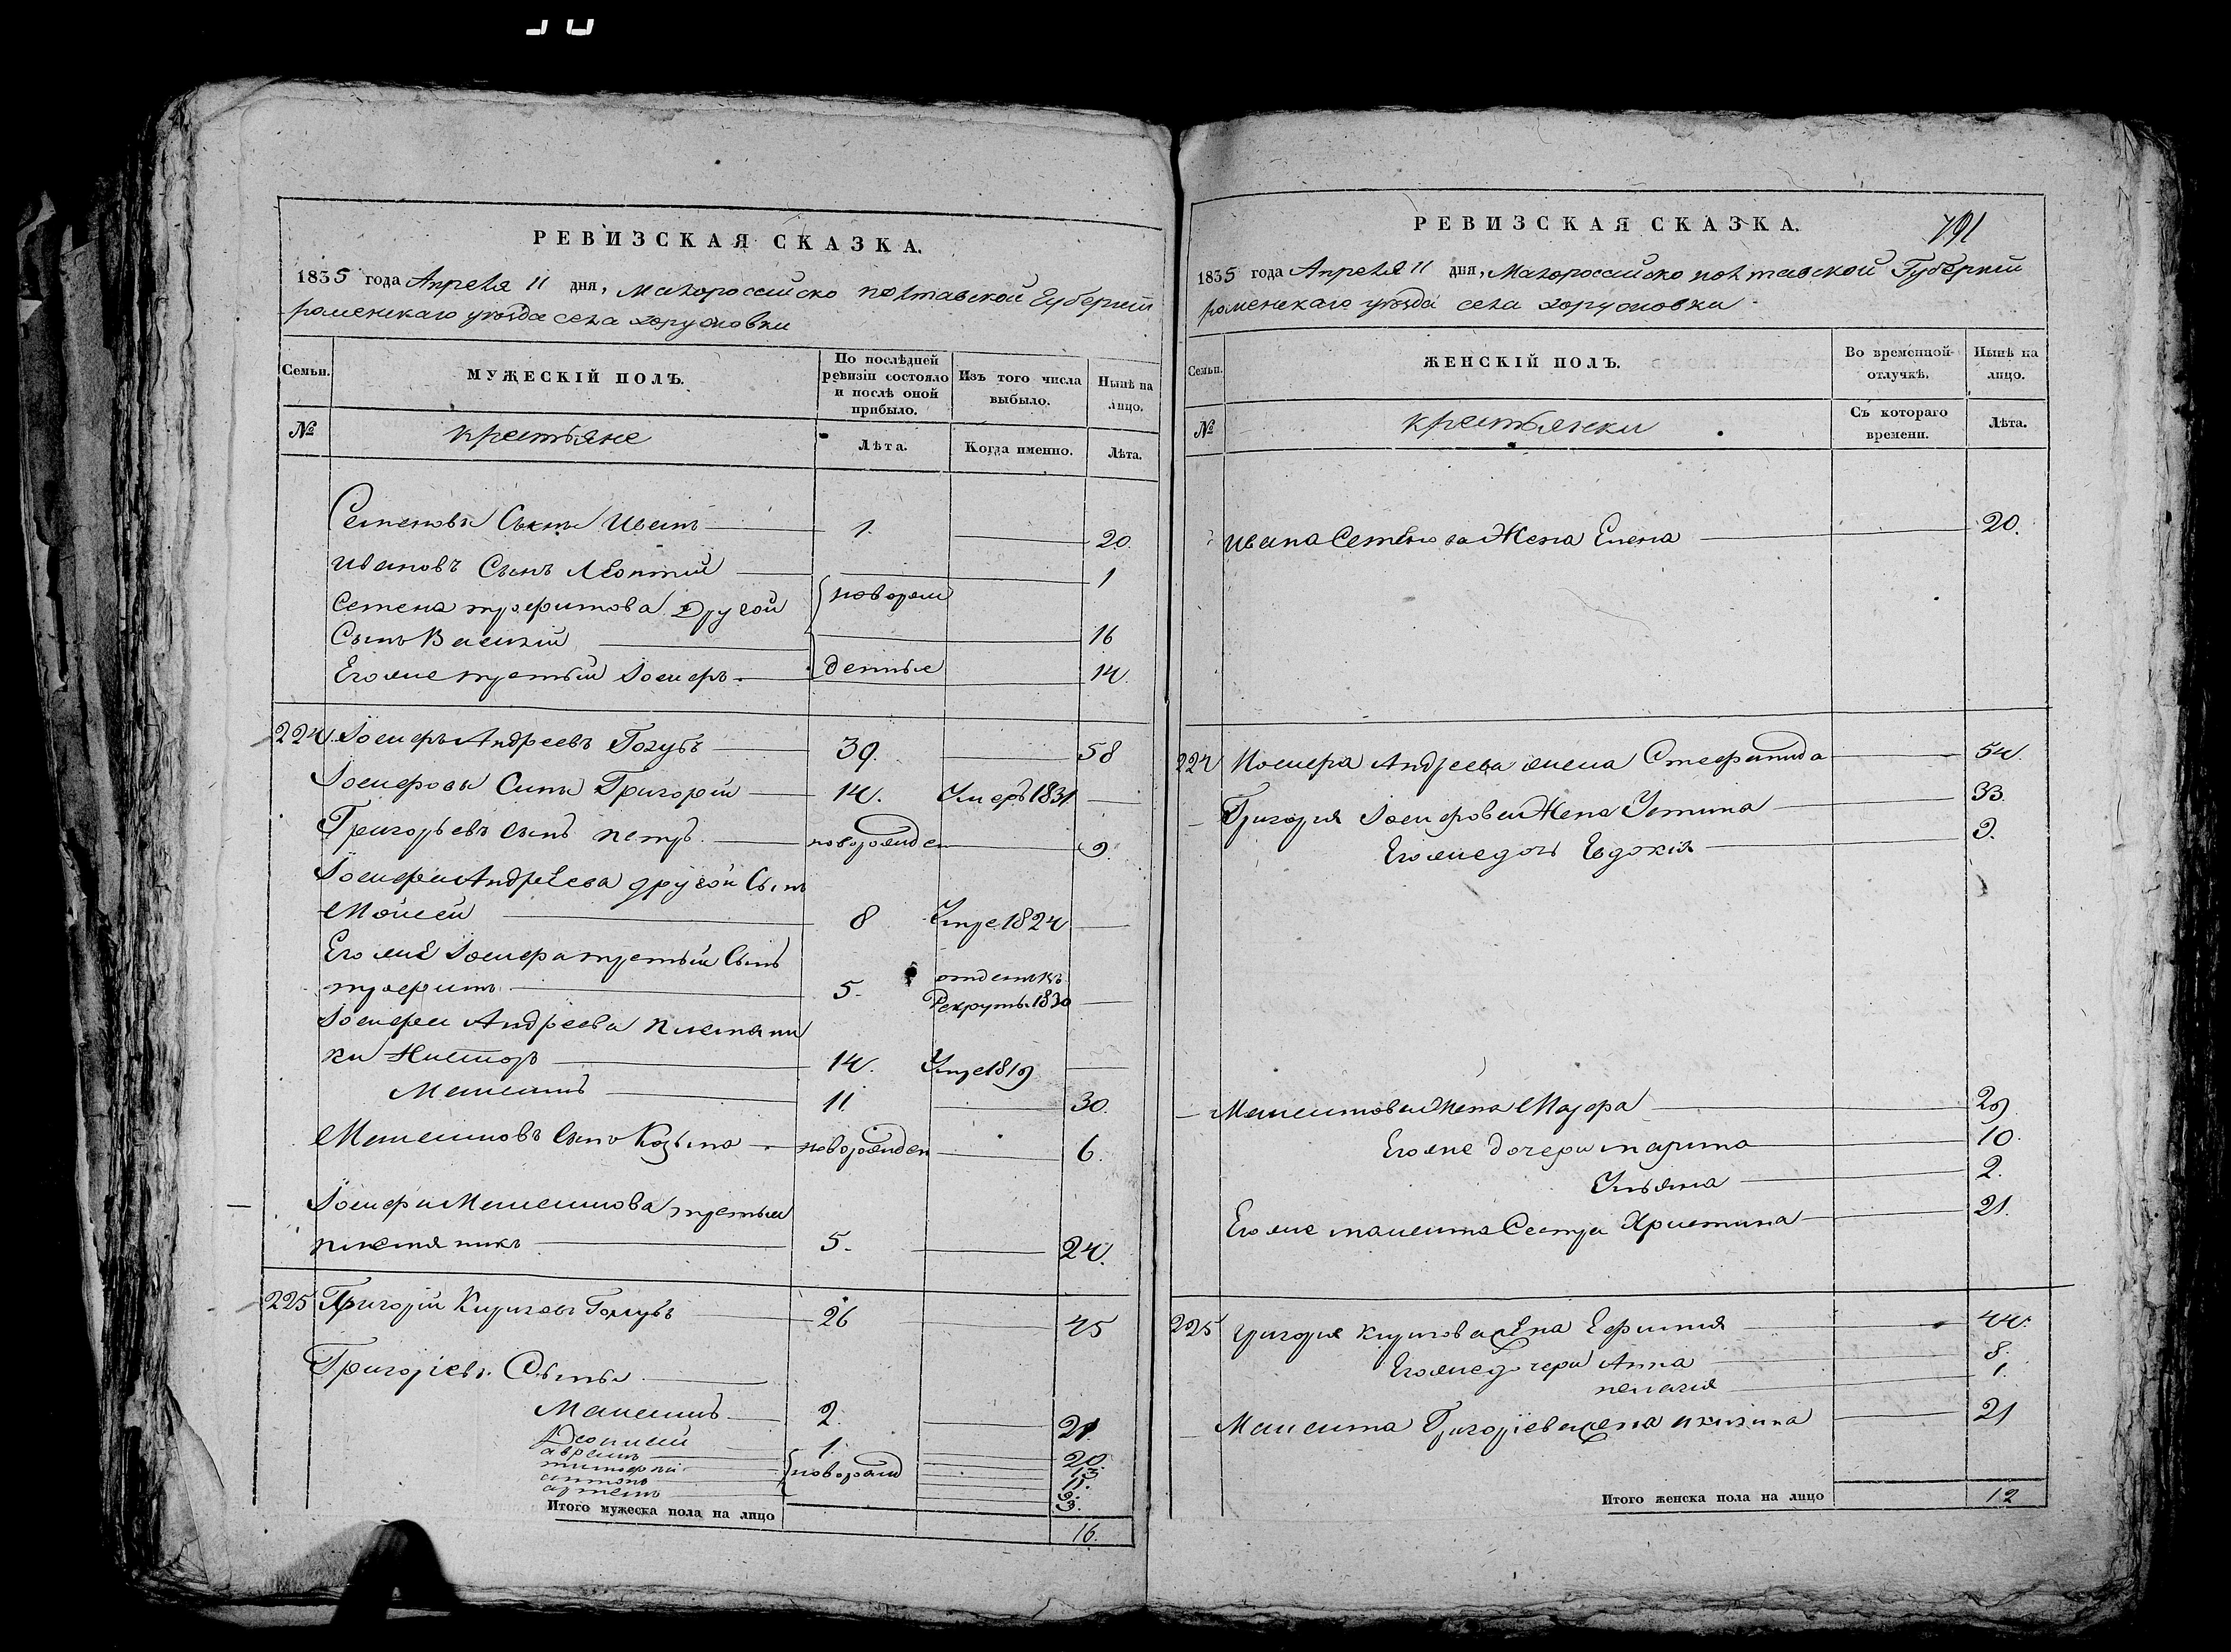 РЕВИЗСКАЯ СКАЗКА.
1835 года Апреля 11 дня, Малороссийско полтавской Губернии
роменскаго уезда села хоружовки
Семьи.
МУЖЕСКІЙ ПОЛЪ.
По послѣдней ревизіи состояло и послѣ оной прибыло.
Изъ того числа выбыло.
Нынѣ на лицо.
№
крестьяне
Лѣта.
Когда именно.
Лѣта.
Семеновъ Сынъ Иванъ 1. 20.
Ивановъ Сынъ Леонтий 1
Семена трофимова Другой новорож
Сынъ Василий 16
Егоже третий Іосифъ денные 14.
224 Іосифъ Андреевъ Голубъ 39. 58
Іосифовы Сины Григорий 14. Умеръ 1831
Григорьевъ сынъ петръ новорожде 9.
Іосифа Андреева другой Сынъ
Мойсей 8 Умре 1824
Егоже Іосифа третий Сынъ
трофимъ 5. отданъ въ
Рекруты 1830
Іосифа Андреева племянни
ки Нисторъ 14. Умре 1819
Максимъ 11 30.
Максимовъ сынъ Козьма новорожден 6.
Іосифа третьи
племянникъ 5. 24.
225 Григорий Кириловъ Голубъ 26 45
Григоріевы Сыны
Максимъ 2. 21
1. 20.
аврамъ новорожд 13.
тимофей 11.
антонъ 9.
артемъ 3.
Итого мужеска пола на лицо 16.
РЕВИЗСКАЯ СКАЗКА. 791
1835 года Апреля 11 дня, Малороссийско полтавской Губернии
роменскаго уезда села хоружовки
Семьи.
ЖЕНСКІЙ ПОЛЪ.
Во временной отлучкѣ.
Нынѣ на лицо.
№
крестьянки
Съ котораго времени.
Лѣта.
Ивана Семенова Жена Елена 20.
224 Иосифа Андреева жена Стефанида 54.
Григория Іосифова Жена Устина 33.
Егоже дочь Евдокія 9.
Максимова Жена Марфа 29
Егоже дочери марина 10.
Ульяна 2.
Егоже максима Сестра Христина 21.
225 григория кирилова жена Ефимия 44.
Егоже дочери Анна 8.
пелагия 1.
Максима Григоріева жена акилина 21
Итого женска пола на лицо 12